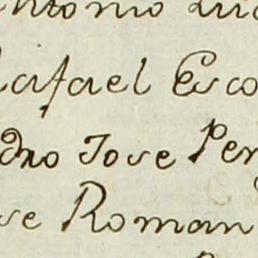 Antonio Lu
Rafael Esco
dro Jose Per
se Roman